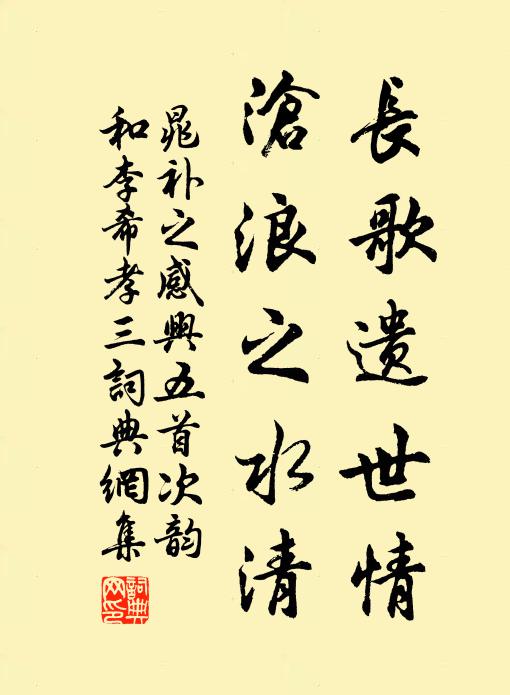 長歌遺世情
滄浪之水清
晁补之感興五首次韵
和李希孝三詞典網集
詞典网印